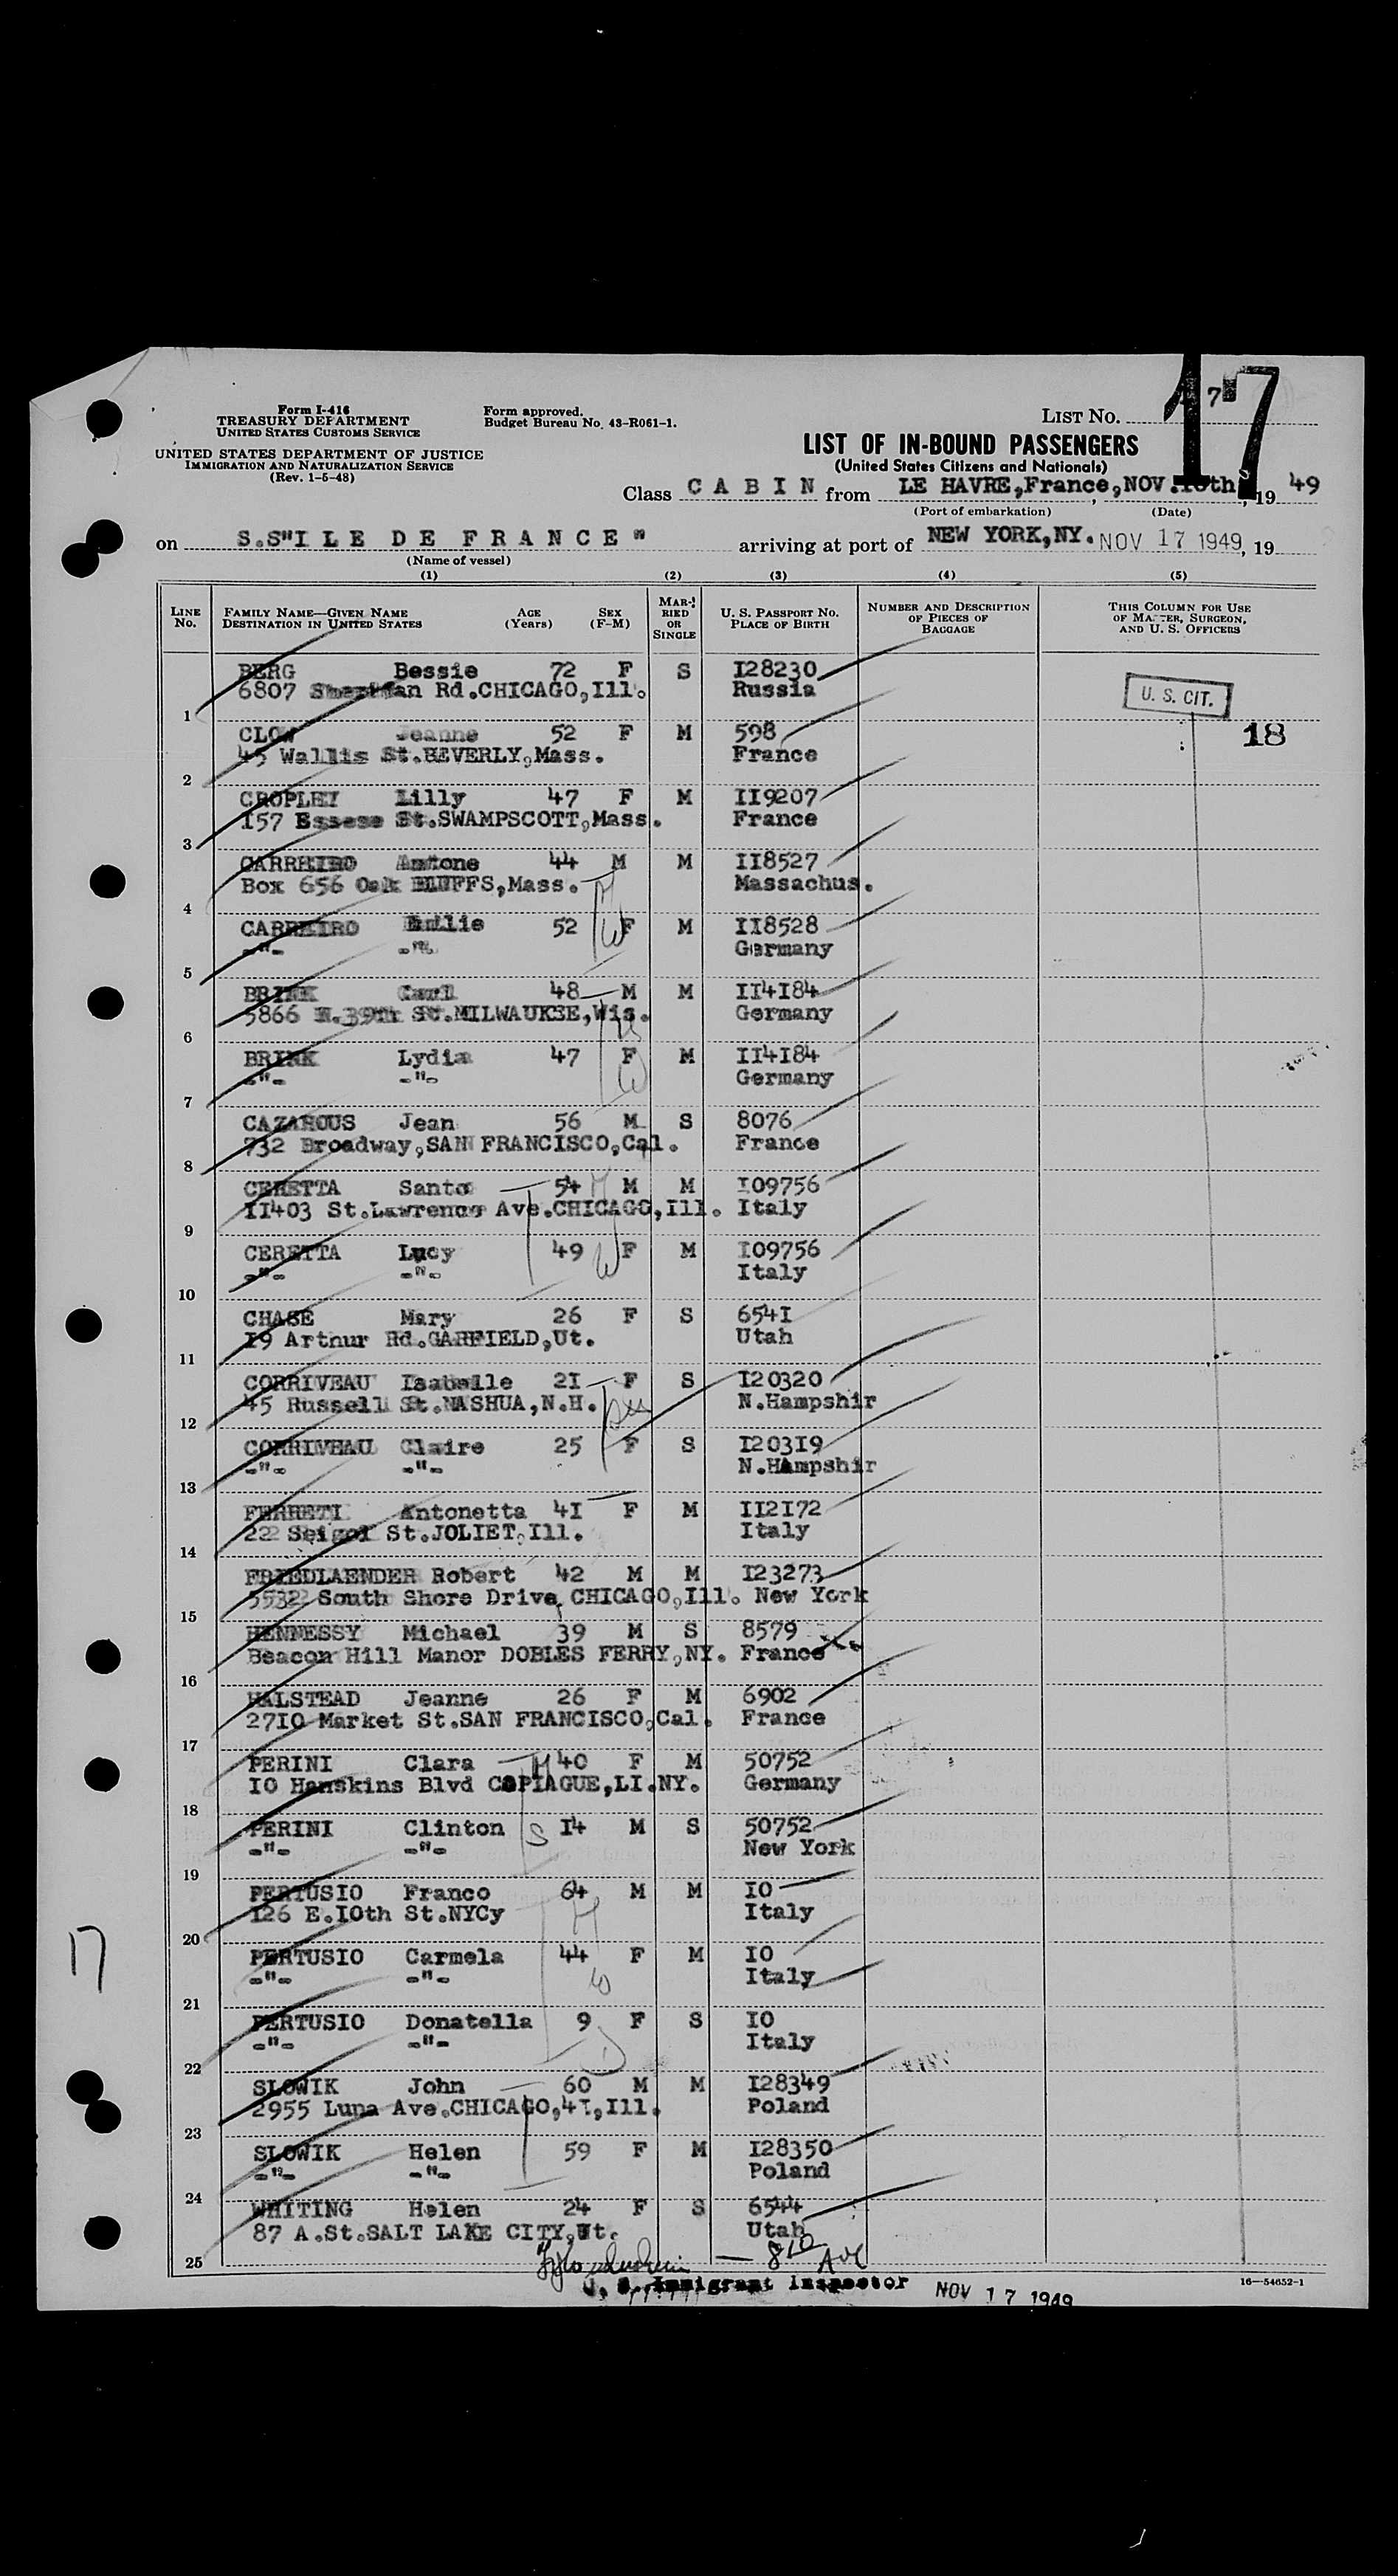 Form I-416
TREASURY DEPARTMENT
UNITED STATES CUSTOMS SERVICE
UNITED STATES DEPARTMENT OF JUSTICE
IMMIGRATION AND NATURALIZATION SERVICE
(Rev. 1-5-48)
Form approved.
Budget Bureau No. 43-R061-1.
LIST NO. 7
17
LIST OF IN-BOUND PASSENGERS
(United States Citizens and Nationals)
Class C A B I N from LE HAVRE,France, NOV. 19 49
(Port of embarkation) (Date)
on S.S"I L E D E F R A N C E " arriving at port of NEW YORK,NY. NOV 17 1949, 19
(Name of vessel)
(1) (2) (3) (4) (5)
LINE No. FAMILY NAME—GIVEN NAME DESTINATION IN UNITED STATES AGE (Years) SEX (F-M) MARRIED OR SINGLE U. S. PASSPORT NO. PLACE OF BIRTH NUMBER AND DESCRIPTION OF PIECES OF BAGGAGE THIS COLUMN FOR USE OF MASTER, SURGEON, AND U. S. OFFICERS
BERG Bessie 72 F S I28230
6807 Rd.CHICAGO,Ill. Russia
1
U. S. CIT.
CLOW Jeanne 52 F M 598
18
45 Wallis St.BEVERLY,Mass. France
2
CROPLEY Lilly 47 F M II9207
I57 St.SWAMPSCOTT,Mass. France
3
CARREIRO Antone 44 M M II8527
Box 656 Oak BLUFFS,Mass. Massachus.
4
CARREIRO Emilie 52 F M II8528
-"- -"- Germany
5
BRINK Carl 48 M M II4I84
5866 N.39th St.MILWAUKEE,Wis. Germany
6
BRINK Lydia 47 F M II4I84
-"- -"- Germany
7
CAZAROUS Jean 56 M S 8076
732 Broadway,SAN FRANCISCO,Cal. France
8
CERETTA Santo 54 M M I09756
II403 St.Lawrence Ave.CHICAGO,Ill. Italy
9
CERETTA Lucy 49 F M I09756
-"- -"- Italy
10
CHASE Mary 26 F S 654I
I9 Arthur Rd.GARFIELD,Ut. Utah
11
CORRIVEAU Isabelle 2I F S I20320
45 Russell St.NASHUA,N.H. N.Hampshir
12
CORRIVEAU Claire 25 F S I203I9
-"- -"- N.HAmpshir
13
FERRETI Antonetta 4I F M II2I72
22 Seigol St.JOLIET,Ill. Italy
14
FRIEDLAENDER Robert 42 M M I23273
5532 South Shore Drive, CHICAGO,Ill. New York
15
HENNESSY Michael 39 M S 8579
Beacon Hill Manor DOBLES FERRY,NY. France
16
HALSTEAD Jeanne 26 F M 6902
27I0 Market St.SAN FRANCISCO,Cal. France
17
PERINI Clara 40 F M 50752
I0 Hanskins Blvd COPIAGUE,LI.NY. Germany
18
PERINI Clinton I4 M S 50752
-"- -"- New York
19
PERTUSIO Franco 64 M M I0
I26 E.I0th St.NYCy Italy
20
PERTUSIO Carmela 44 F M I0
-"- -"- Italy
21
PERTUSIO Donatella 9 F S I0
-"- -"- Italy
22
SLOWIK John 60 M M I28349
2955 Luna Ave.CHICAGO,4I,Ill. Poland
23
SLOWIK Helen 59 F M I28350
-"- -"- Poland
24
WHITING Helen 24 F S 6544
87 A.St.SALT LAKE CITY,Ut. Utah
25
U. S. Immigrant Inspector NOV 17 1949
16—54652-1
17